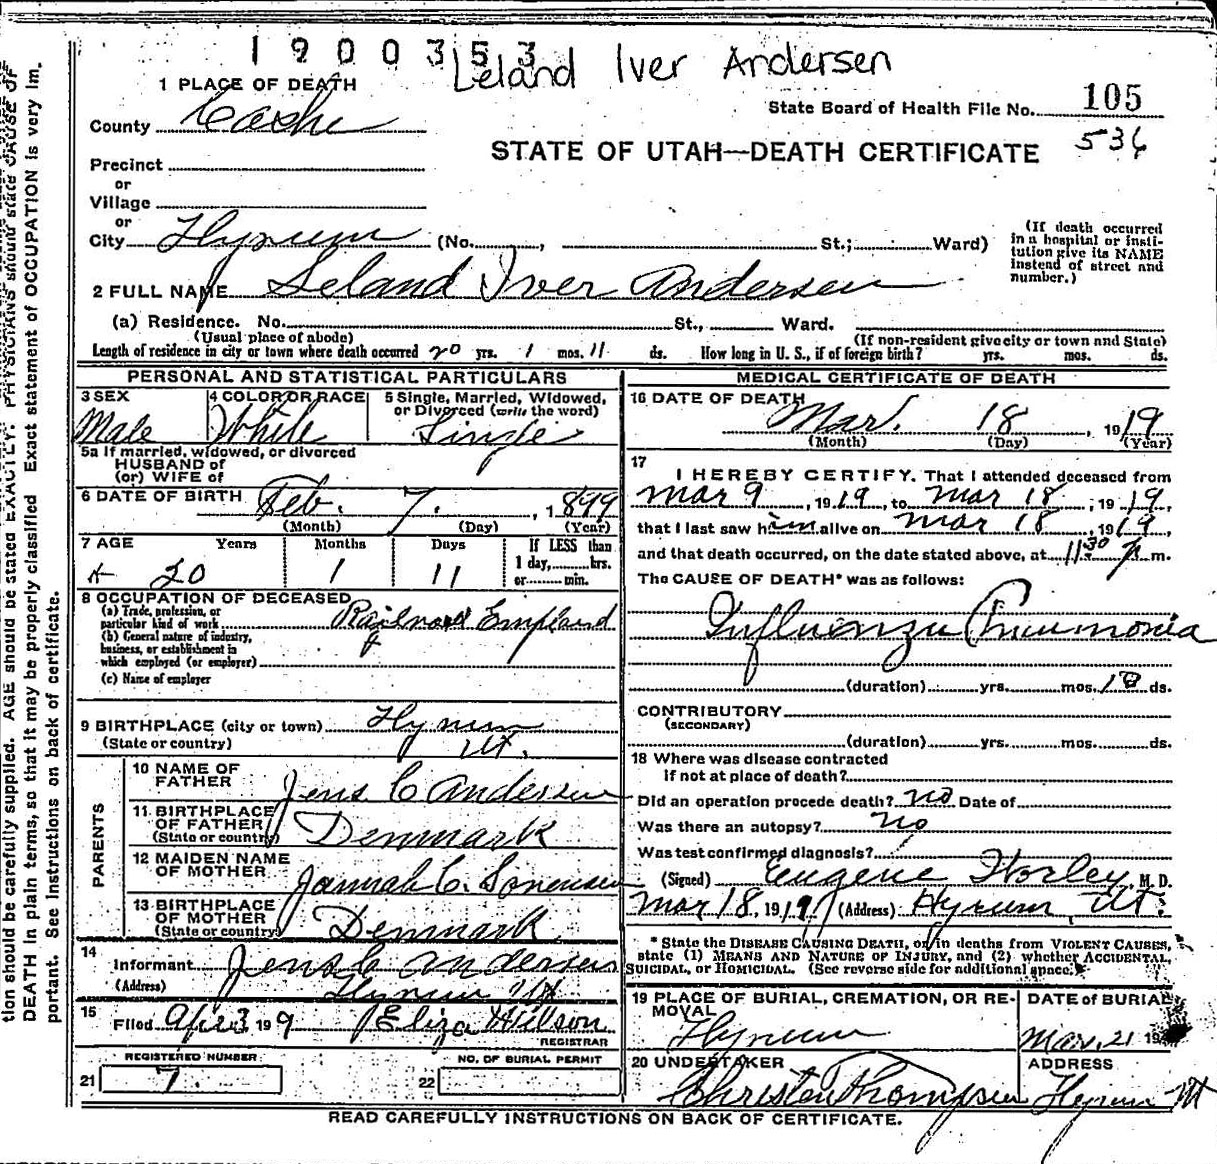 1900353
Leland Iver Andersen
1 PLACE OF DEATH
State Board of Health File No. 105
County Cache
536
STATE OF UTAH—DEATH CERTIFICATE
Precinct
or
Village
or
City Hyrum (No. , St.; Ward)
(If death occurred in a hospital or institution give its NAME instead of street and number.)
2 FULL NAME Leland Iver Andersen
(a) Residence. No. St., Ward.
(Usual place of abode) (If non-resident give city or town and State)
Length of residence in city or town where death occurred 20 yrs. 1 mos. 11 ds. How long in U. S., if of foreign birth? yrs. mos. ds.
PERSONAL AND STATISTICAL PARTICULARS
3 SEX 4 COLOR OR RACE 5 Single, Married, Widowed, or Divorced (write the word)
Male White Single
5a If married, widowed, or divorced
HUSBAND of
(or) WIFE of
6 DATE OF BIRTH Feb. 7. , 1899
(Month) (Day) (Year)
7 AGE Years Months Days If LESS than
1 day, hrs.
or min.
20 1 11
8 OCCUPATION OF DECEASED
(a) Trade, profession, or particular kind of work Railroad
(b) General nature of industry, business, or establishment in which employed (or employer)
(c) Name of employer
9 BIRTHPLACE (city or town) Hyrum
(State or country) Ut.
PARENTS
10 NAME OF FATHER Jens C Andersen
11 BIRTHPLACE OF FATHER Denmark
(State or country)
12 MAIDEN NAME OF MOTHER C. Sorensen
13 BIRTHPLACE OF MOTHER Denmark
(State or country)
14
Informant Jens C Andersen
(Address) Hyrum Ut
15
Filed Apr 23 1919 Eliza Wilson
REGISTRAR
REGISTERED NUMBER NO. OF BURIAL PERMIT
21 7. 22
MEDICAL CERTIFICATE OF DEATH
16 DATE OF DEATH
Mar. 18 , 1919
(Month) (Day) (Year)
17
I HEREBY CERTIFY. That I attended deceased from
Mar 9 , 1919, to Mar 18 , 1919,
that I last saw him alive on Mar 18 , 1919,
and that death occurred, on the date stated above, at 11:30 m.
The CAUSE OF DEATH* was as follows:
Influenza Pneumonia
(duration) yrs. mos. 10 ds.
CONTRIBUTORY
(SECONDARY)
(duration) yrs. mos. ds.
18 Where was disease contracted
if not at place of death?
Did an operation procede death? no Date of
Was there an autopsy? No
Was test confirmed diagnosis?
(Signed) Eugene Worley, M. D.
Mar 18, 1919 (Address) Hyrum, Ut.
* State the DISEASE CAUSING DEATH, or in deaths from VIOLENT CAUSES,
state (1) MEANS AND NATURE OF INJURY, and (2) whether ACCIDENTAL,
SUICIDAL, or HOMICIDAL. (See reverse side for additional space.)
19 PLACE OF BURIAL, CREMATION, OR REMOVAL DATE of BURIAL
Hyrum Mar. 21 19
20 UNDERTAKER ADDRESS
Christen Thompson Hyrum Ut
READ CAREFULLY INSTRUCTIONS ON BACK OF CERTIFICATE.
tion should be carefully supplied. AGE should be stated EXACTLY. PHYSICIANS should state CAUSE OF
DEATH in plain terms, so that it may be properly classified. Exact statement of OCCUPATION is very im-
portant. See instructions on back of certificate.